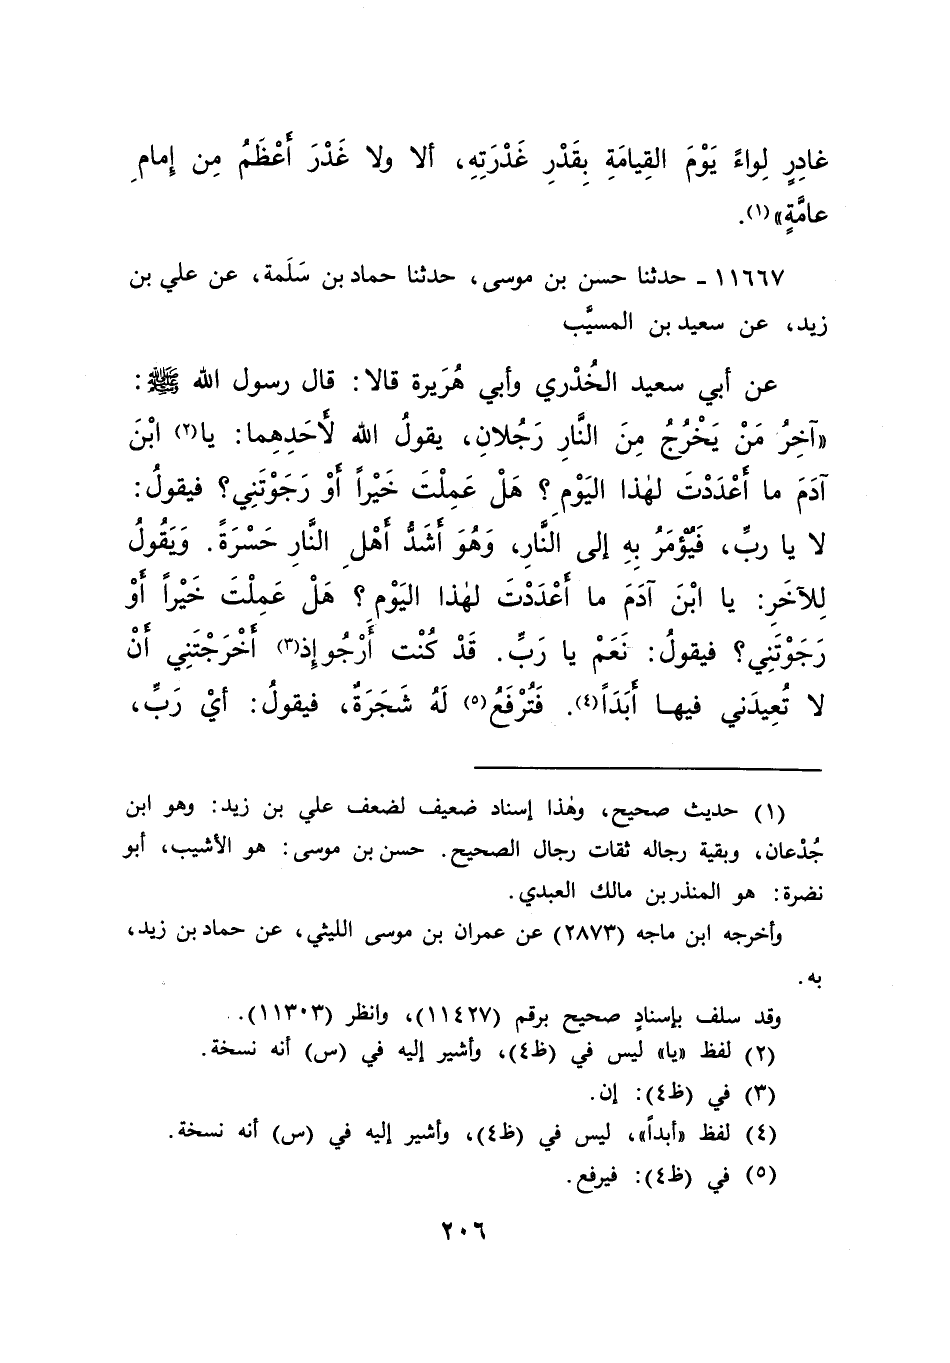 غادِرٍ لِواءً يَوْمَ القِيامَةِ بِقَدْرِ غَدْرَتِهِ، ألا ولا غَدْرَ أَعْظَمُ مِن إِمامِ
عامَّةٍ»(١).
١١٦٦٧ - حدثنا حسن بن موسى، حدثنا حماد بن سَلَمة، عن علي بن
زيد، عن سعيد بن المسيَّب
عن أبي سعيد الخُدْري وأبي هُرَيرة قالا: قال رسول الله ﷺ:
«آخِرُ مَنْ يَخْرُجُ مِنَ النَّارِ رَجُلانِ، يقولُ الله لأَحَدِهِما: يا(٢) ابْنَ
آدَمَ ما أَعْدَدْتَ لهٰذا اليَوْمِ؟ هَلْ عَمِلْتَ خَيْراً أَوْ رَجَوْتَنِي؟ فيقولُ:
لا يا ربِّ، فَيُؤْمَرُ بِهِ إلى النَّارِ، وَهُوَ أَشَدُّ أَهْلِ النَّارِ حَسْرَةً. وَيَقُولُ
لِلآخَرِ: يا ابْنَ آدَمَ ما أَعْدَدْتَ لهٰذا اليَوْمِ؟ هَلْ عَمِلْتَ خَيْراً أَوْ
رَجَوْتَنِي؟ فيقولُ: نَعَمْ يا رَبِّ. قَدْ كُنْت أَرْجُو إذ(٣) أَخْرَجْتَنِي أَنْ
لا تُعِيدَني فيها أَبَدَاً(٤). فَتُرْفَعُ(٥) لَهُ شَجَرَةٌ، فيقولُ: أيْ رَبِّ،
(١) حديث صحيح، وهٰذا إسناد ضعيف لضعف علي بن زيد: وهو ابن
جُدْعان، وبقية رجاله ثقات رجال الصحيح. حسن بن موسى: هو الأشيب، أبو
نضرة: هو المنذر بن مالك العبدي.
وأخرجه ابن ماجه (٢٨٧٣) عن عمران بن موسى الليثي، عن حماد بن زيد،
به.
وقد سلف بإسنادٍ صحيح برقم (١١٤٢٧)، وانظر (١١٣٠٣).
(٢) لفظ «يا» ليس في (ظ٤)، وأشير إليه في (س) أنه نسخة.
(٣) في (ظ٤): إن.
(٤) لفظ «أبداً»، ليس في (ظ٤)، وأشير إليه في (س) أنه نسخة.
(٥) في (ظ٤): فيرفع.
٢٠٦